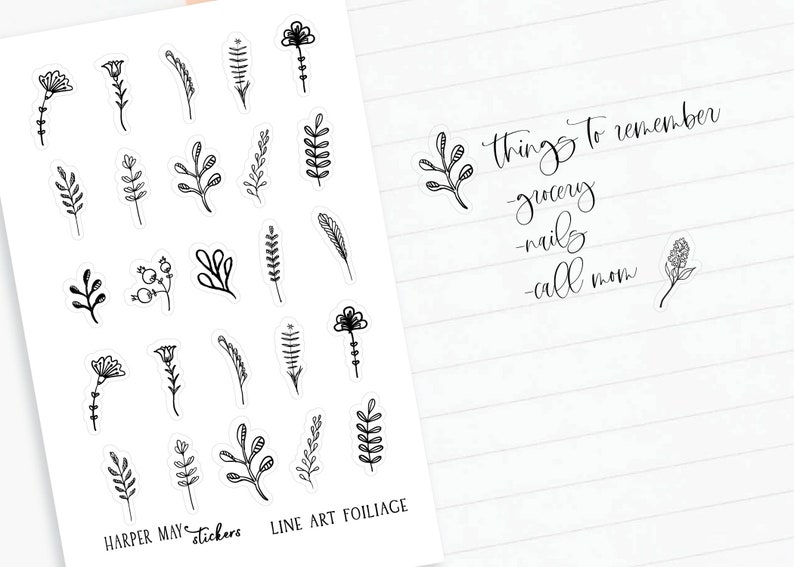 things to remember
-grocery
-nails
-call mom
HARPER MAY stickers LINE ART FOILIAGE